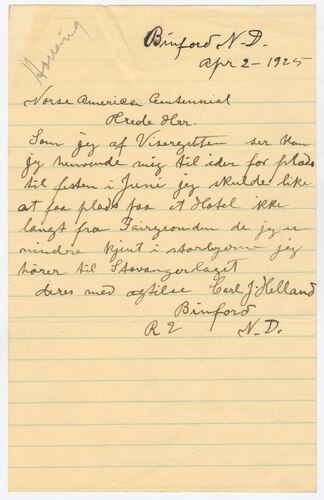 Housing
Binford N.D.
Apr 2 - 1925
Norse American Centennial
Hrede Her.
Som jeg af Viseregtten ser kan
jy henvende mig til eder for plads
til festen i June jeg skulde like
at faa plads paa et Hotel ikke
langt fra Fairgrounden de jg er
mindre kjent i storbyerne jeg
hører til Stavangerlaget
deres med agtilse Carl J. Helland
Binford
R 2 N.D.